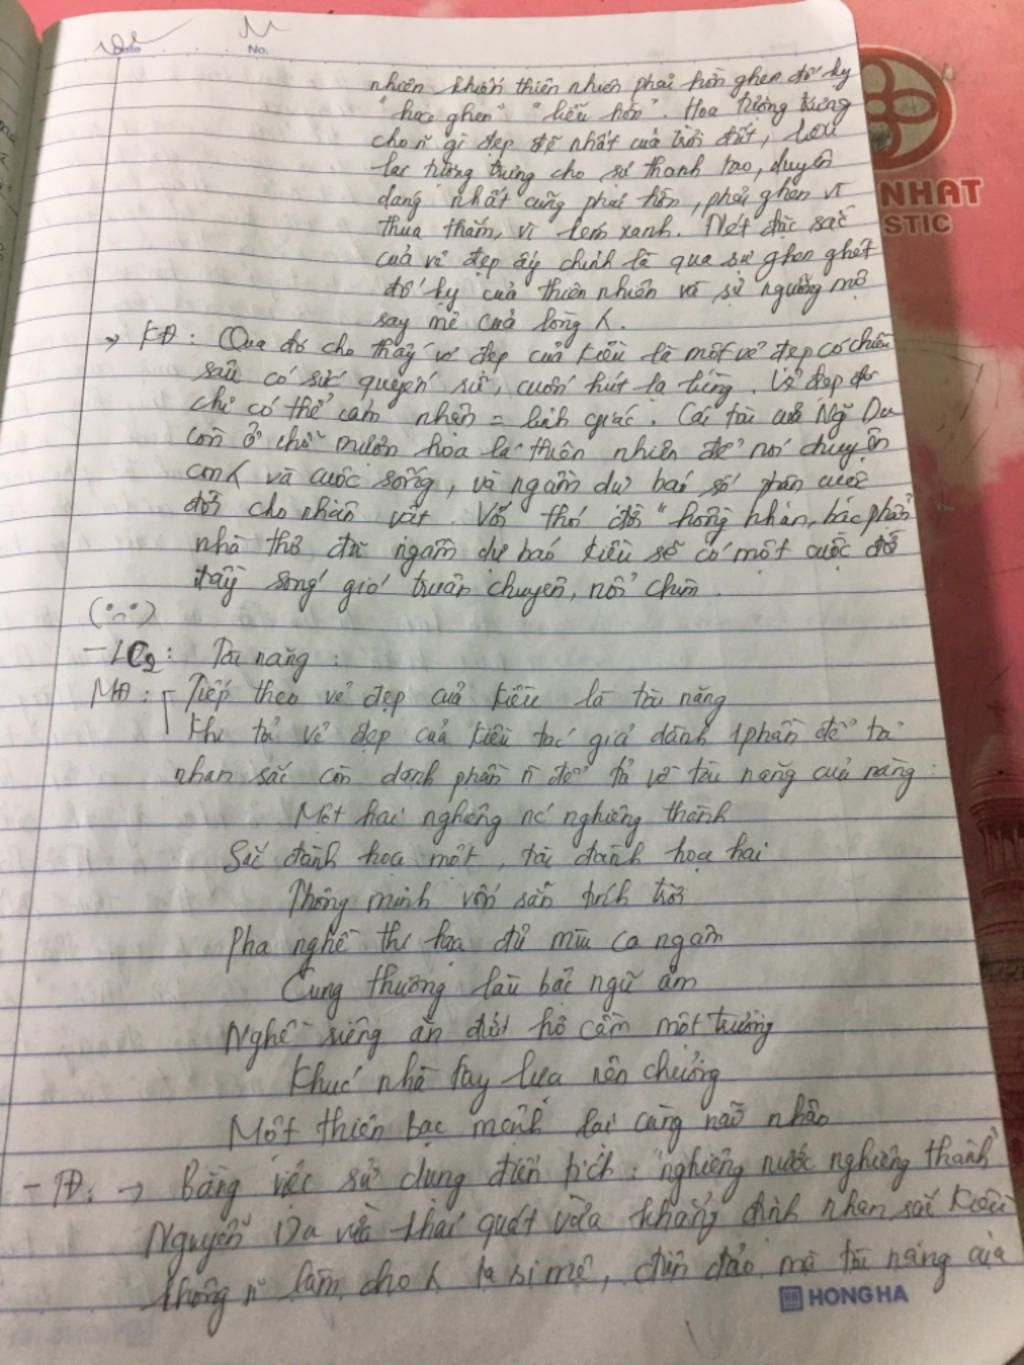 Date No.
nhiên khiến thiên nhiên phải hờn ghen đố kỵ
"hoa ghen" "liễu hờn". Hoa tượng trưng
cho n~ gì đẹp đẽ nhất của trời đất, liễu
lại tượng trưng cho sự thanh tao, duyên
dáng nhất cũng phải hờn, phải ghen vì
thua thắm, vì kém xanh. Nét đặc sắc
của vẻ đẹp ấy chính là qua sự ghen ghét
đố kỵ của thiên nhiên và sự ngưỡng mộ
say mê của lòng
→ KĐ: Qua đó cho thấy vẻ đẹp của Kiều là một vẻ đẹp có chiều
sâu có sức quyến rũ, cuốn hút lạ lùng. Vẻ đẹp đó
chỉ có thể cảm nhận = linh giác. Cái tài của Ng~ Du
còn ở chỗ mượn hoa lá thiên nhiên để nói chuyện
con và cuộc sống, và ngầm dự báo số phận cuộc
đời cho nhân vật. Với "hồng nhan, bạc phận"
nhà thơ đã ngầm dự báo Kiều sẽ có một cuộc đời
đầy sóng gió truân chuyên, nổi chìm.
- LC2: Tài năng:
MĐ: Tiếp theo vẻ đẹp của Kiều là tài năng
Khi tả vẻ đẹp của Kiều tác giả dành 1 phần để tả
nhan sắc còn dành phần n~ để tả về tài năng của nàng:
Một hai nghiêng nc' nghiêng thành
Sắc đành họa một, tài đành họa hai
Thông minh vốn sẵn tính trời
Pha nghề thi họa đủ mùi ca ngâm
Cung thương làu bậc ngũ âm
Nghề riêng ăn đứt hồ cầm một trương
Khúc nhà tay lựa nên chương
Một thiên bạc mệnh lại càng não nhân
- TĐ: → Bằng việc sử dụng điển tích: "nghiêng nước nghiêng thành"
Nguyễn Du vừa khái quát vừa khẳng định nhan sắc Kiều
không n~ làm cho ta si mê, điên đảo mà tài năng của
HONG HA
NHAT
STIC